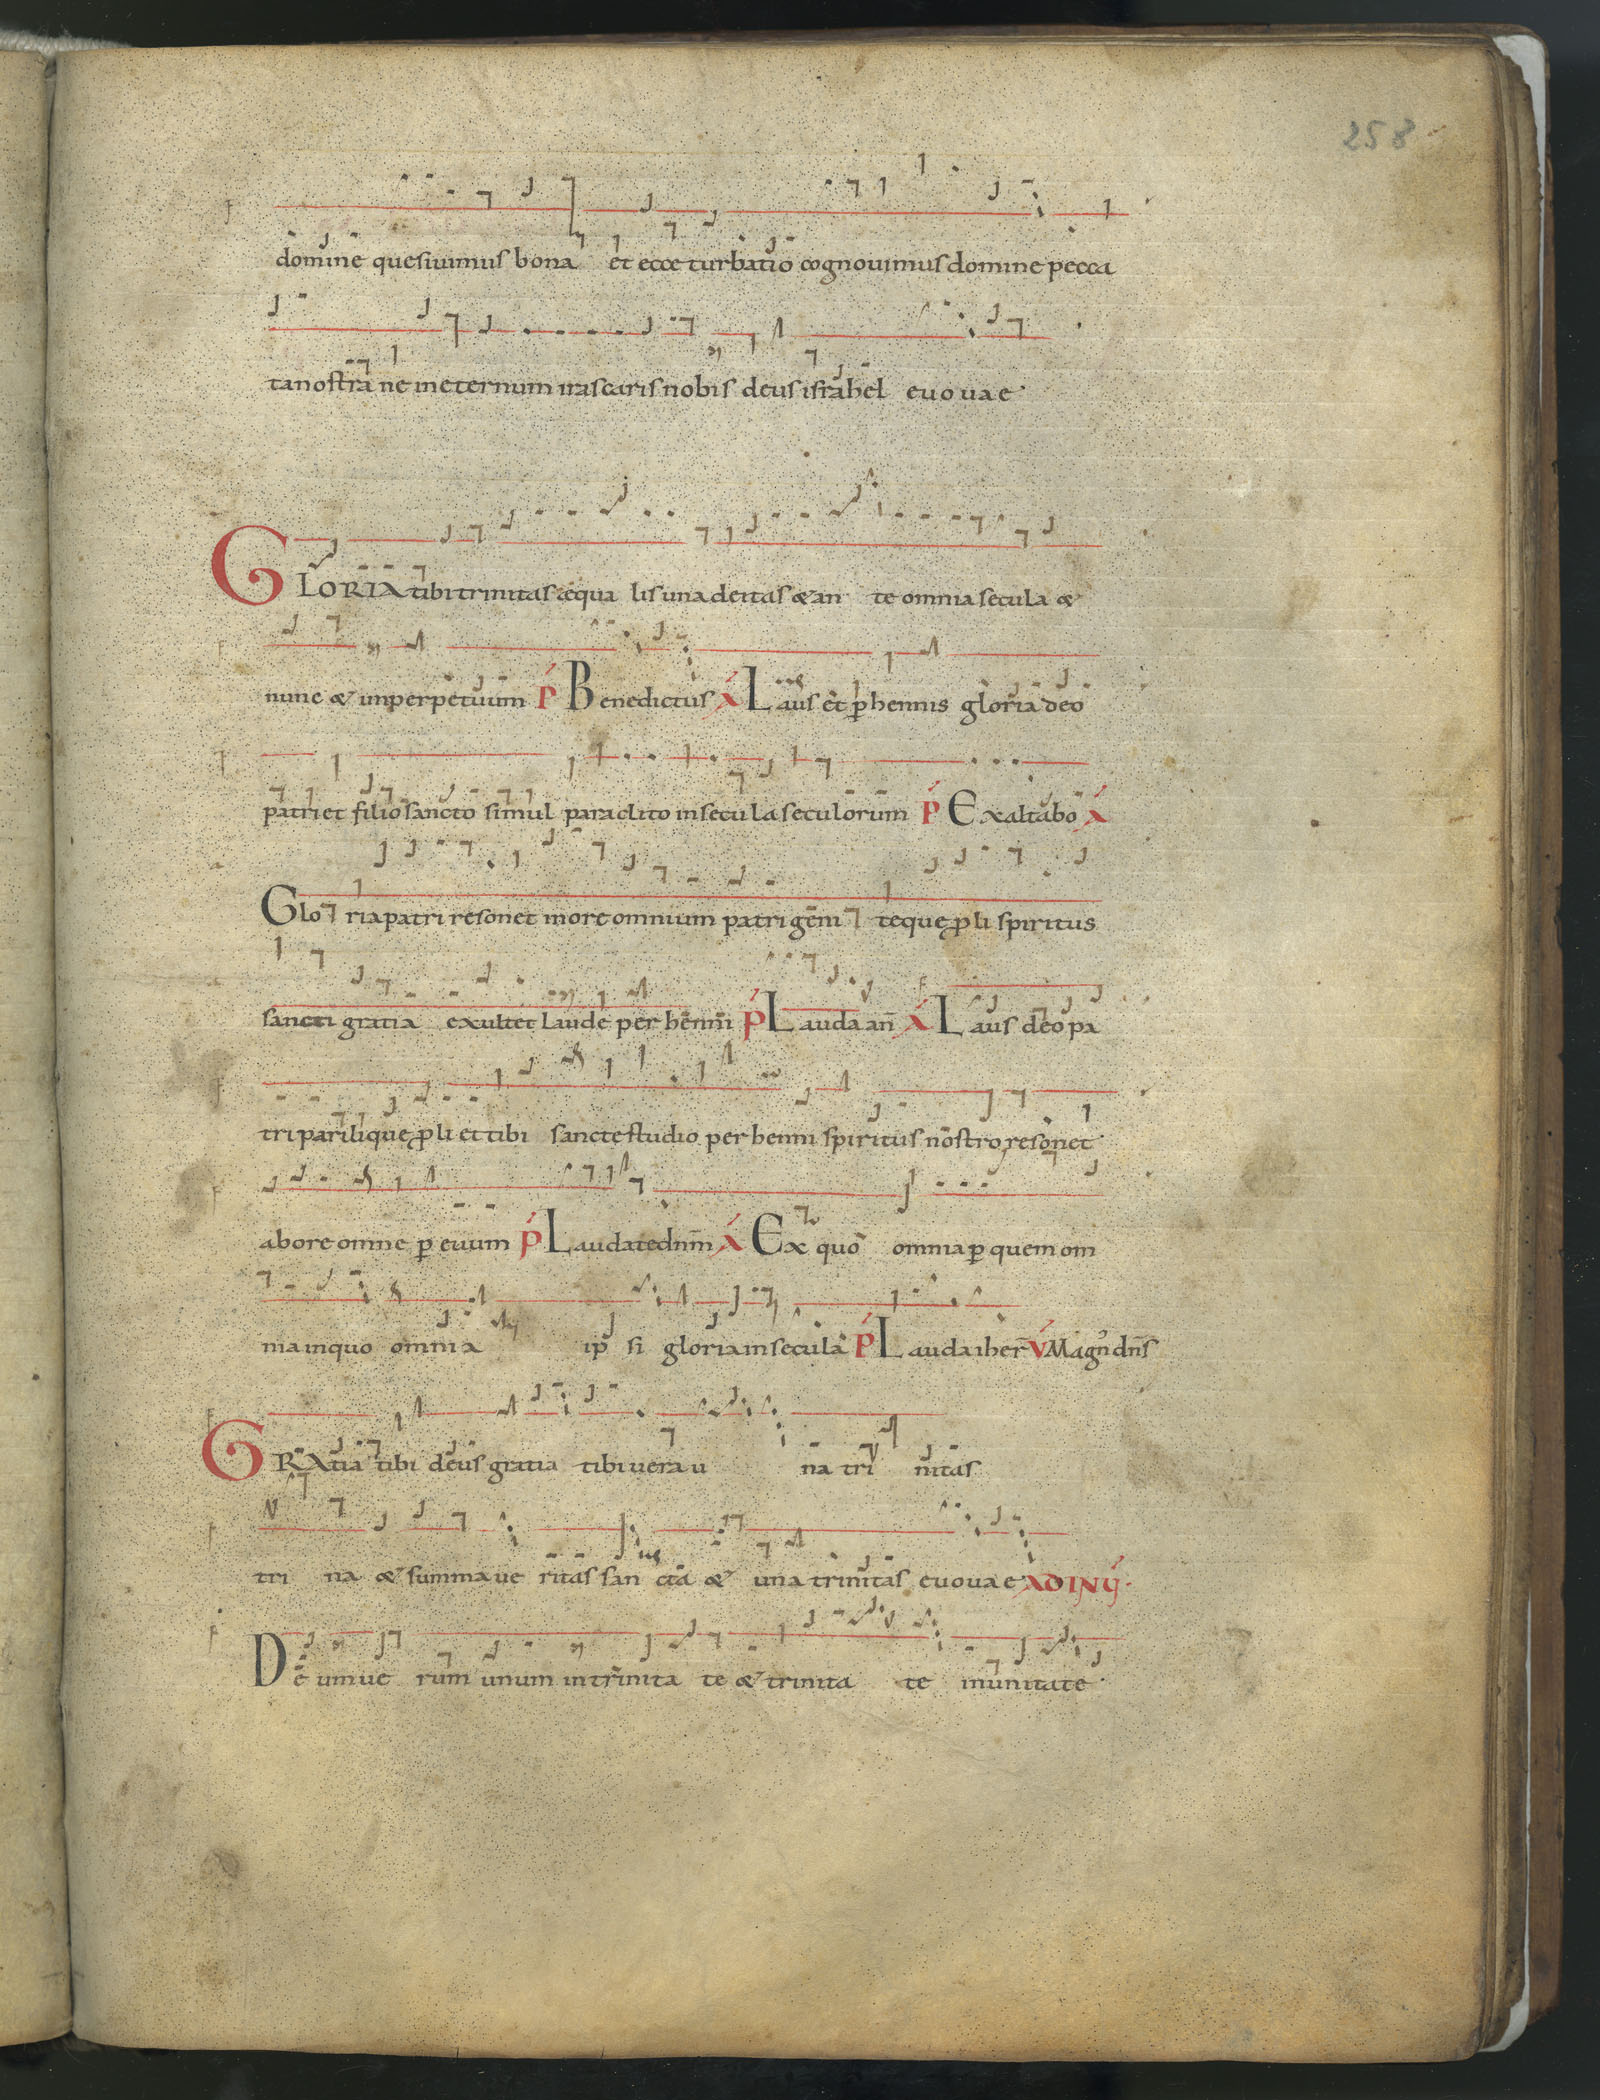 258
domine quesiuimus bona et ecce turbatio cognouimus domine pecca
ta nostra ne in eternum irascaris nobis deus israhel euouae
GLORIA tibi trinitas æqua lis una deitas & an te omnia secula &
nunc & in perpetuum P Benedictus A Laus et phennis gloria deo
patri et filio sancto simul paraclito in secula seculorum P Exaltabo A
Glo ria patri resonet more omnium patri geni teque proli spiritus
sancti gratia exultet laude per henni P Lauda an A Laus deo pa
tri parilique proli et tibi sancte studio per henni spiritus nostro resonet
ab ore omne p euum P Laudate dnm A Ex quo omnia p quem om
nia in quo omnia ip si gloria in secula P Lauda iher V Magn dns
GRAtia tibi deus gratia tibi uera u na tri nitas
tri na & summa ue ritas san cta & una trinitas euouae AD IN
Dē um ue rum unum in trinita te & trinita te in unitate